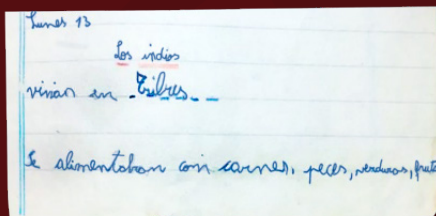 Lunes 13
Los indios
vivian en Tribus
Se alimentaban con carnes, peces, verduras, fruta